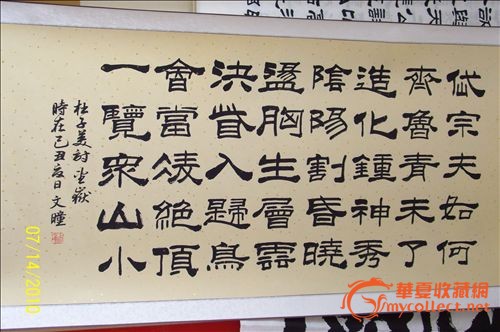 岱宗夫如何
齊魯青未了
造化鍾神秀
陰陽割昏曉
盪胸生層雲
決眥入歸鳥
會當凌絕頂
一覽眾山小
杜子美詩望嶽
時在己丑夏日文瞳
07/14/2010
華夏收藏網
cang.com